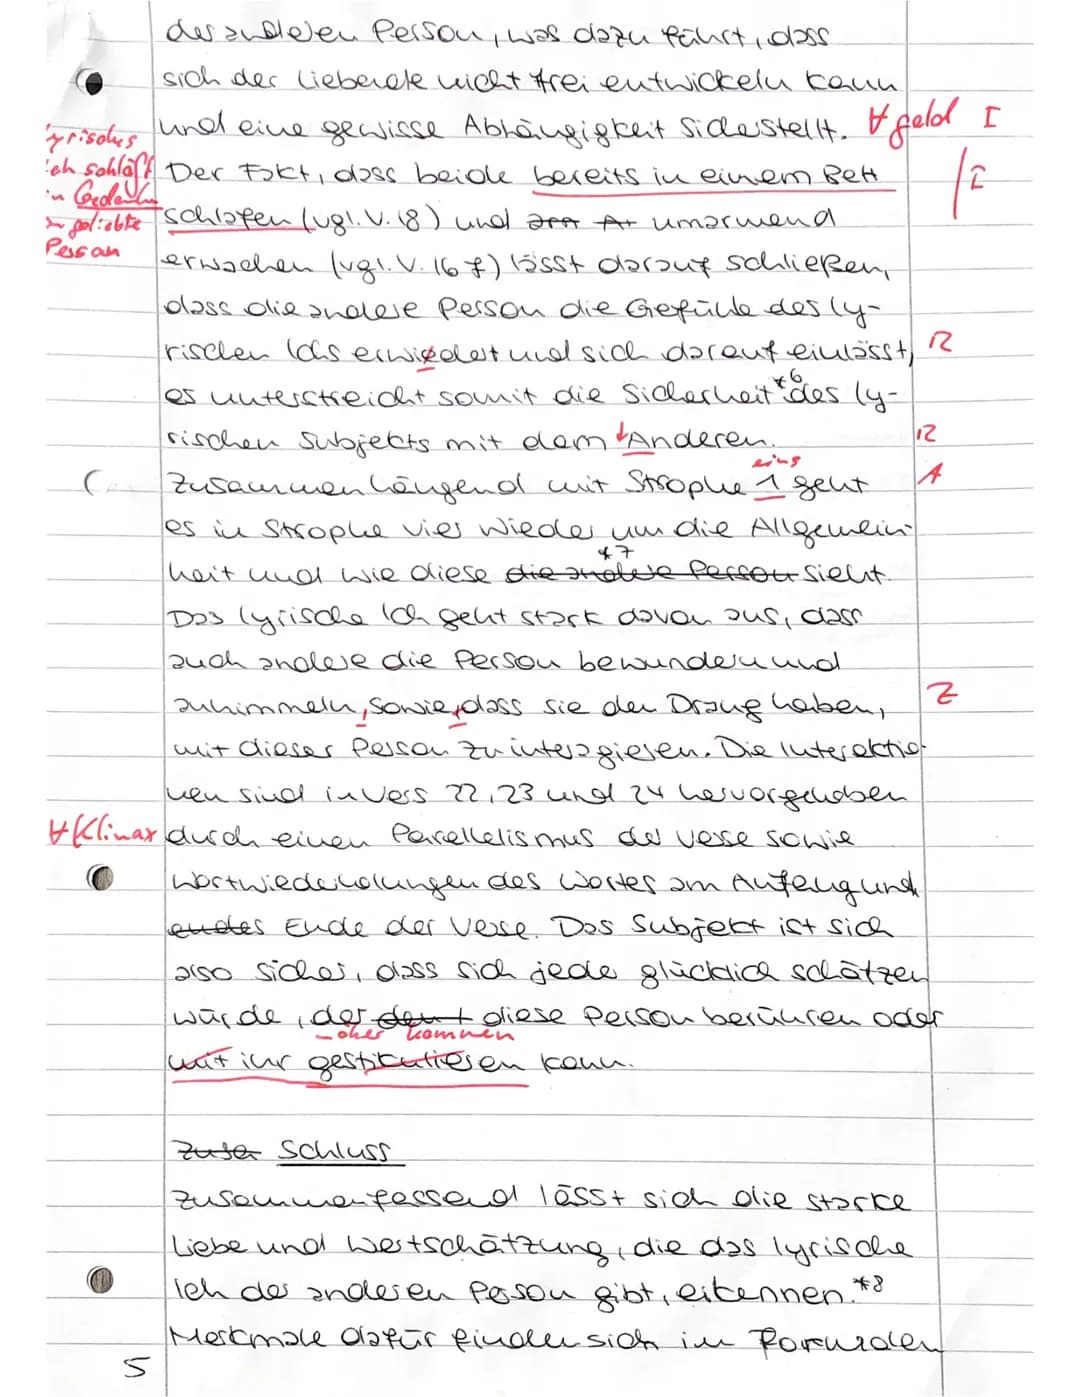 der anderen Person, was dazu führt, dass
sich der Liebende nicht frei entwickeln kann
und eine gewisse Abhängigkeit sicherstellt. ∀ geld I
lyrisches
Ich schläft
in Gedanken
an geliebte
Person
Der Fakt, dass beide bereits in einem Bett /I
schlafen (vgl. V. 18) und umarmend
erwachen (vgl. V. 16 f) lässt darauf schließen,
dass die andere Person die Gefühle des ly-
rischen Ichs erwiedert und sich darauf einlässt, R
es unterstreicht somit die Sicherheit *6 des ly-
rischen Subjekts mit dem Anderen. R
eins
Zusammenhängend mit Strophe 1 geht A
es in Strophe vier wieder um die Allgemein-
*7
heit und wie diese die andere Person sieht.
Das lyrische Ich geht stark davon aus, dass
auch andere die Person bewundern und
anhimmeln, sowie, dass sie den Drang haben, Z
mit dieser Person zu interagieren. Die Interaktio-
nen sind in Vers 22, 23 und 24 hervorgehoben
∀ Klimax durch einen Parallelismus der Verse sowie
Wortwiederholungen des Wortes am Anfang und
endes Ende der Verse. Das Subjekt ist sich
also sicher, dass sich jede glücklich schätzen
würde, der diese Person berühren oder
näher kommen
mit ihr gestikulieren kann.
Schluss
Zusammenfassend lässt sich die starke
Liebe und Wertschätzung, die das lyrische
Ich der anderen Person gibt, erkennen. *8
Merkmale dafür finden sich in
5